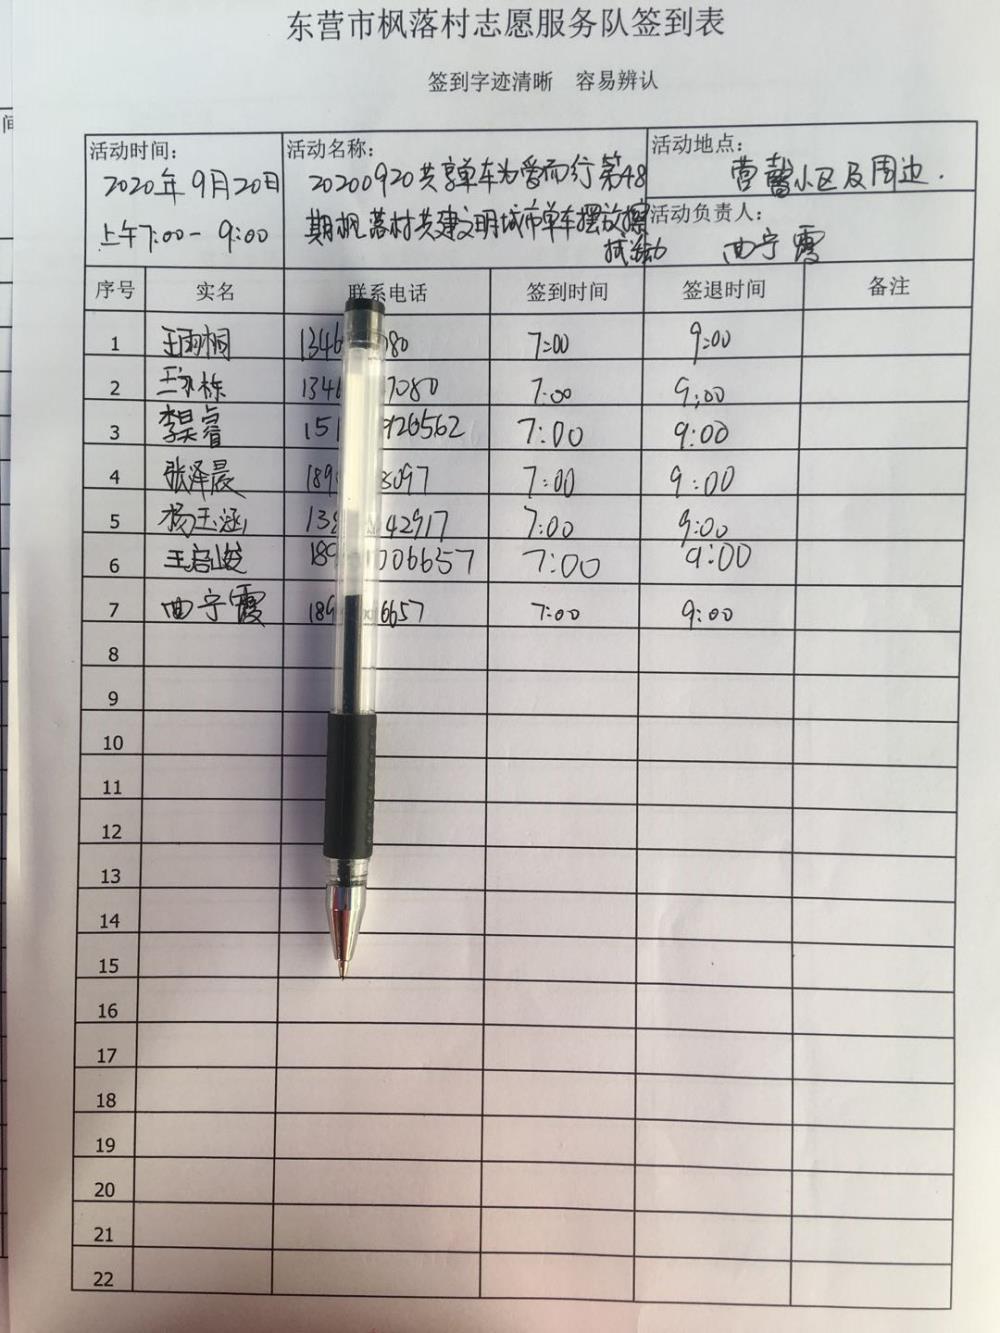 东营市枫落村志愿服务队签到表
签到字迹清晰 容易辨认
活动时间:
2020年9月20日
上午7:00-9:00
活动名称:
20200920共享单车为爱而行第48
期枫落村共建文明城市单车摆放擦
拭活动
活动地点:
营馨小区及周边.
活动负责人:
曲宁霞
序号 实名 联系电话 签到时间 签退时间 备注
1 王雨桐 1346 080 7:00 9:00
2 栋 1346 7080 7:00 9:00
3 李昊睿 151 926562 7:00 9:00
4 张泽晨 189 3097 7:00 9:00
5 杨玉涵 13 42917 7:00 9:00
6 王启 189 006657 7:00 9:00
7 曲宁霞 189 6657 7:00 9:00
8
9
10
11
12
13
14
15
16
17
18
19
20
21
22